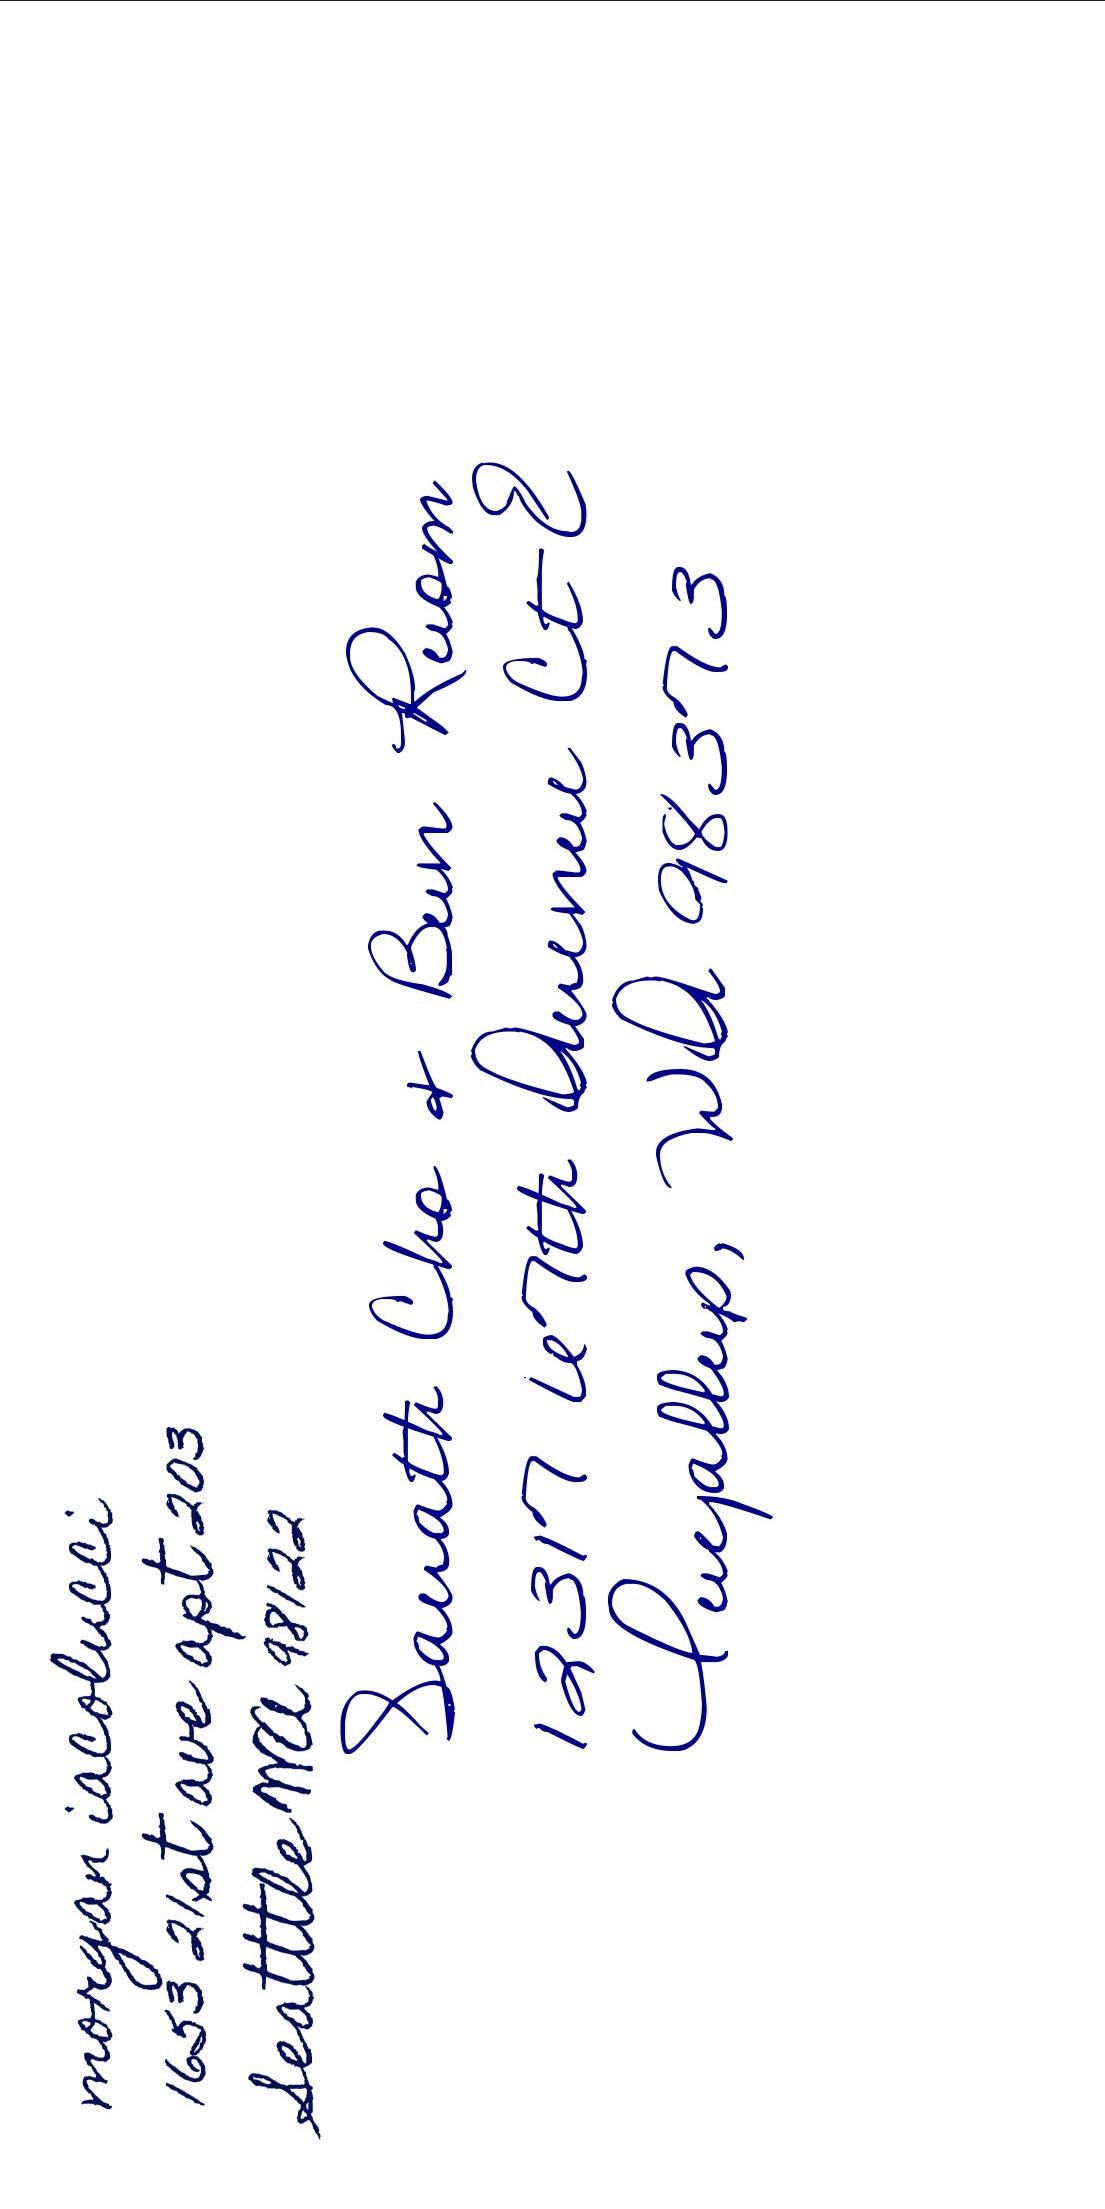 morgan iacolucci
1653 21st ave apt 203
Seattle WA 98122
Savath Cho & Bun Ruom
12317 67th Avenue Ct E
Puyallup, WA 98373